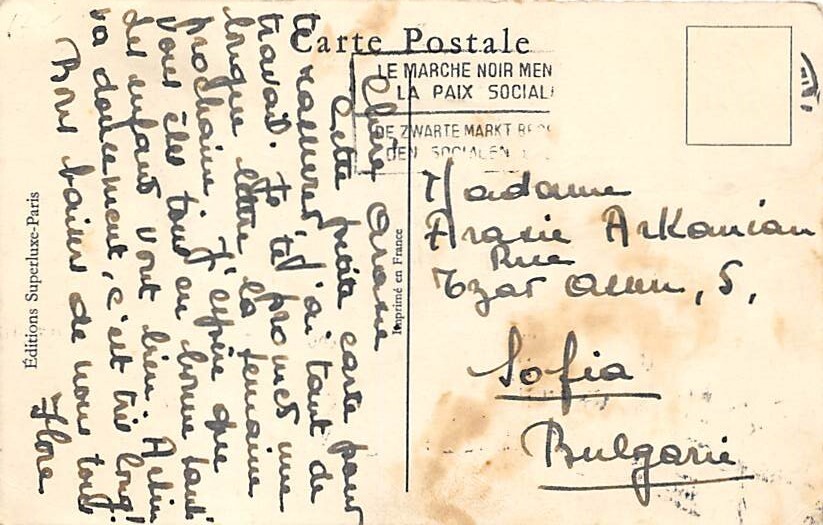 Carte Postale
LE MARCHE NOIR MEN
LA PAIX SOCIAL
DE ZWARTE MARKT BED
DEN SOCIALEN
Chère Arasie
Cette petite carte pour
te rassurer j'ai tant de
travail. Je te promet une
longue lettre la semaine
prochaine j'espère que
vous êtes tous en bonne santé
Les enfants vont bien. Artin
va doucement, c'est très long!
Bons baisers de nous tous
Flore
Madame
Arasie Arkanian
Rue
Tzar Assen, 5,
Sofia
Bulgarie
Éditions Superluxe-Paris
Imprimé en France